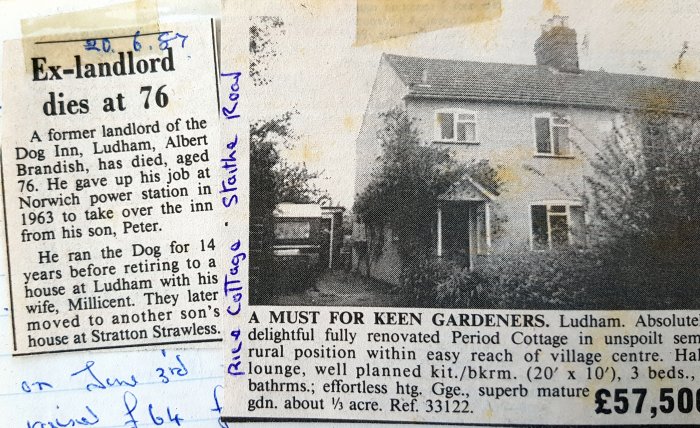 20.6.87
Ex-landlord
dies at 76
A former landlord of the
Dog Inn, Ludham, Albert
Brandish, has died, aged
76. He gave up his job at
Norwich power station in
1963 to take over the inn
from his son, Peter.
He ran the Dog for 14
years before retiring to a
house at Ludham with his
wife, Millicent. They later
moved to another son's
house at Stratton Strawless.
on June 3rd
raised £64
Rice Cottage. Staithe Road
A MUST FOR KEEN GARDENERS. Ludham. Absolute
delightful fully renovated Period Cottage in unspoilt sem
rural position within easy reach of village centre. Ha
lounge, well planned kit./bkrm. (20' x 10'), 3 beds.,
bathrms.; effortless htg. Gge., superb mature
gdn. about ⅓ acre. Ref. 33122. £57,500